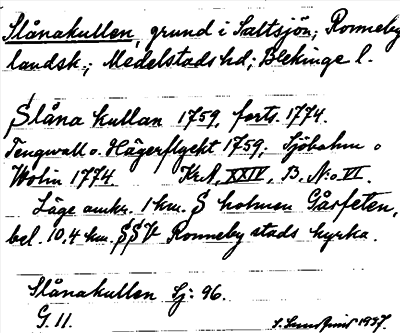 Slånakullen, grund i Saltsjön; Ronneby
landsk.; Medelstads hd; Blekinge l.
Slåna kullan 1759, forts. 1774.
Tengwall o. Hägerflycht 1759; Sjöbohm o
Wolin 1774. Kr.A. XXIV, B. N:o VI.
Läge omkr. 1 km. S holmen Gåsfeten,
bel. 10,4 km. SSV Ronneby stads kyrka.
Slånakullen Sj: 96.
G. 11. 1937.